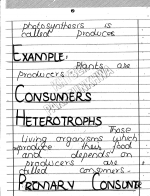 photosynthesis is
called produces
EXAMPLE:
Plants are
producers
CONSUMERS
HETEROTROPHS
Those
living organisms which
produce their food
and depends on
producers are
called consumers.
PRIMARY CONSUM